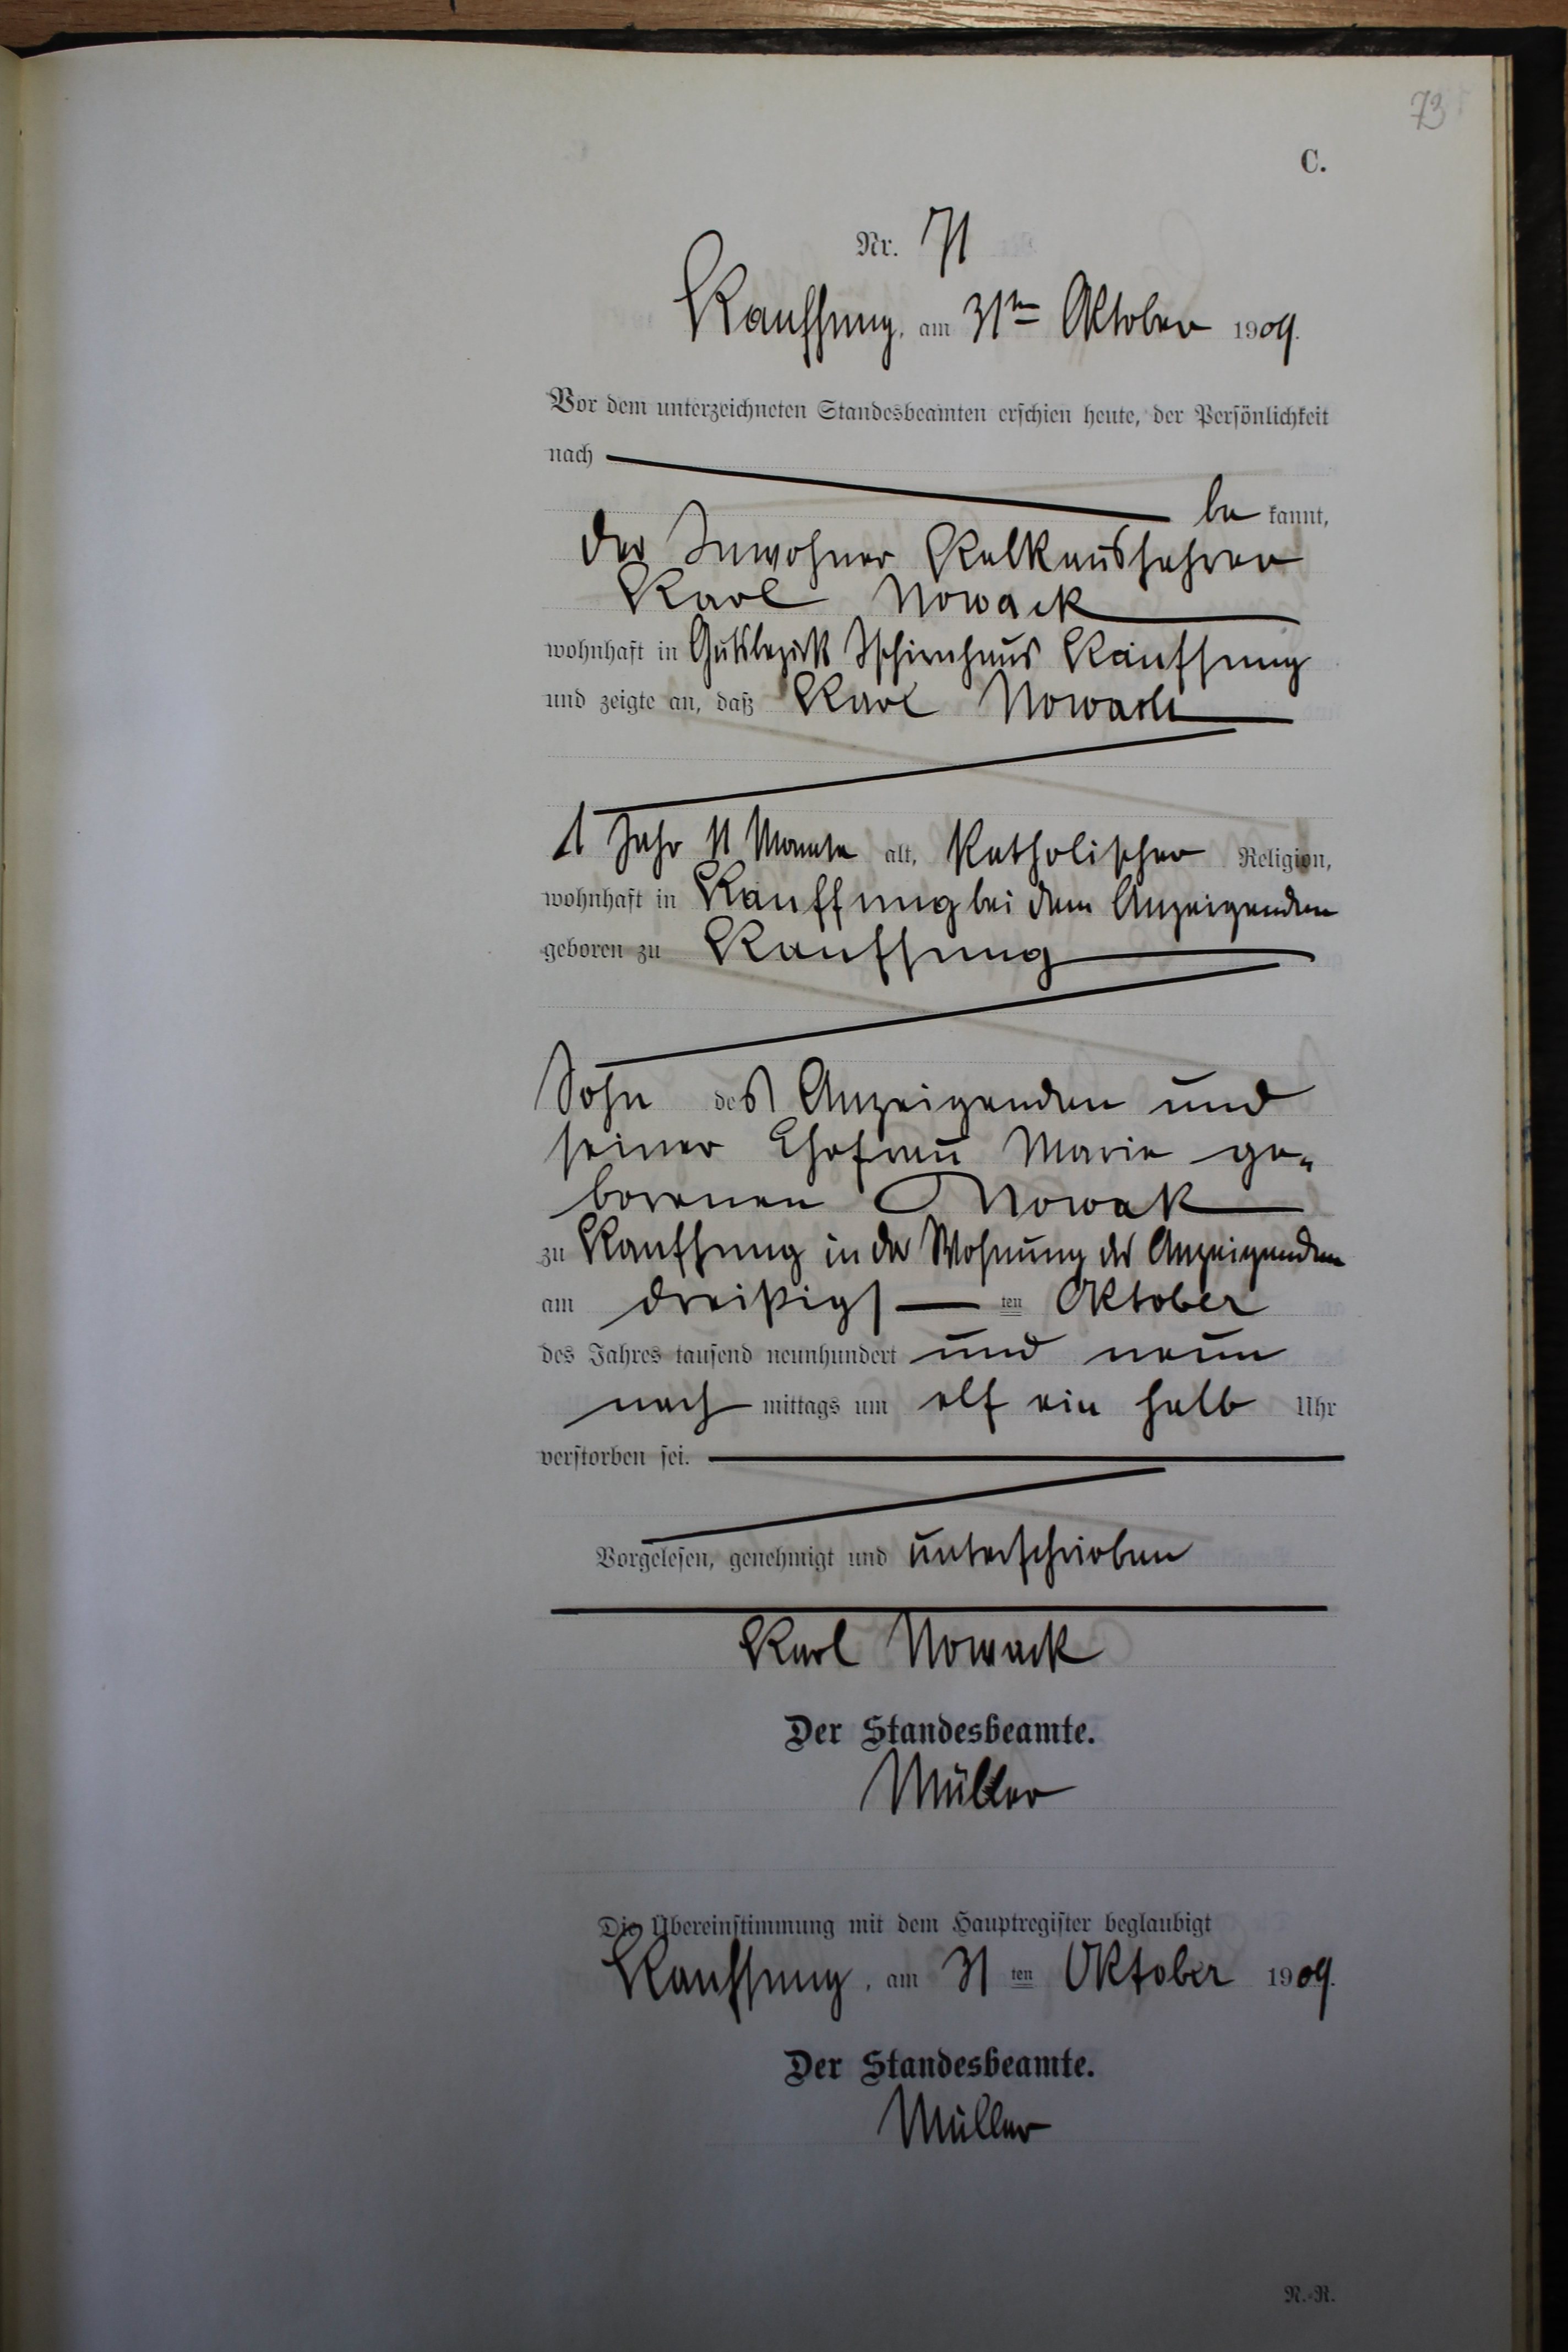 73
C.
Nr. 71
Kauffung, am 31ten Oktober 1909.
Vor dem unterzeichneten Standesbeamten erschien heute, der Persönlichkeit
nach
be kannt,
der Inwohner Kalkausfahrer
Karl Nowack
wohnhaft in Gutsbezirk Tschirnhaus Kauffung
und zeigte an, daß Karl Nowack
1 Jahr 11 Monate alt, Katholischer Religion,
wohnhaft in Kauffung bei dem Anzeigenden
geboren zu Kauffung
Sohn des Anzeigenden und
seiner Ehefrau Marie ge-
borenen Nowak
zu Kauffung in der Wohnung des Anzeigenden
am dreißigsten Oktober
des Jahres tausend neunhundert und neun
nach mittags um elf ein halb Uhr
verstorben sei.
Vorgelesen, genehmigt und unterschrieben
Karl Nowack
Der Standesbeamte.
Müller
Die Übereinstimmung mit dem Hauptregister beglaubigt
Kauffung, am 31 ten Oktober 1909.
Der Standesbeamte.
Müller
N.-R.